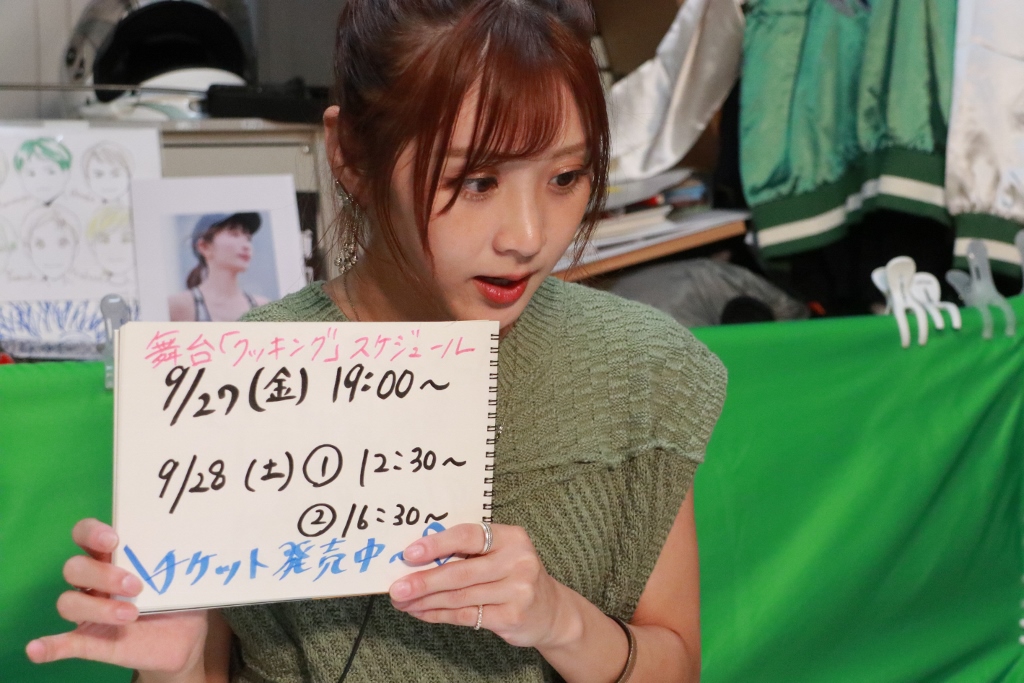 舞台「クッキング」スケジュール
9/27(金) 19:00〜
9/28(土) ① 12:30〜
② 16:30〜
\チケット発売中〜